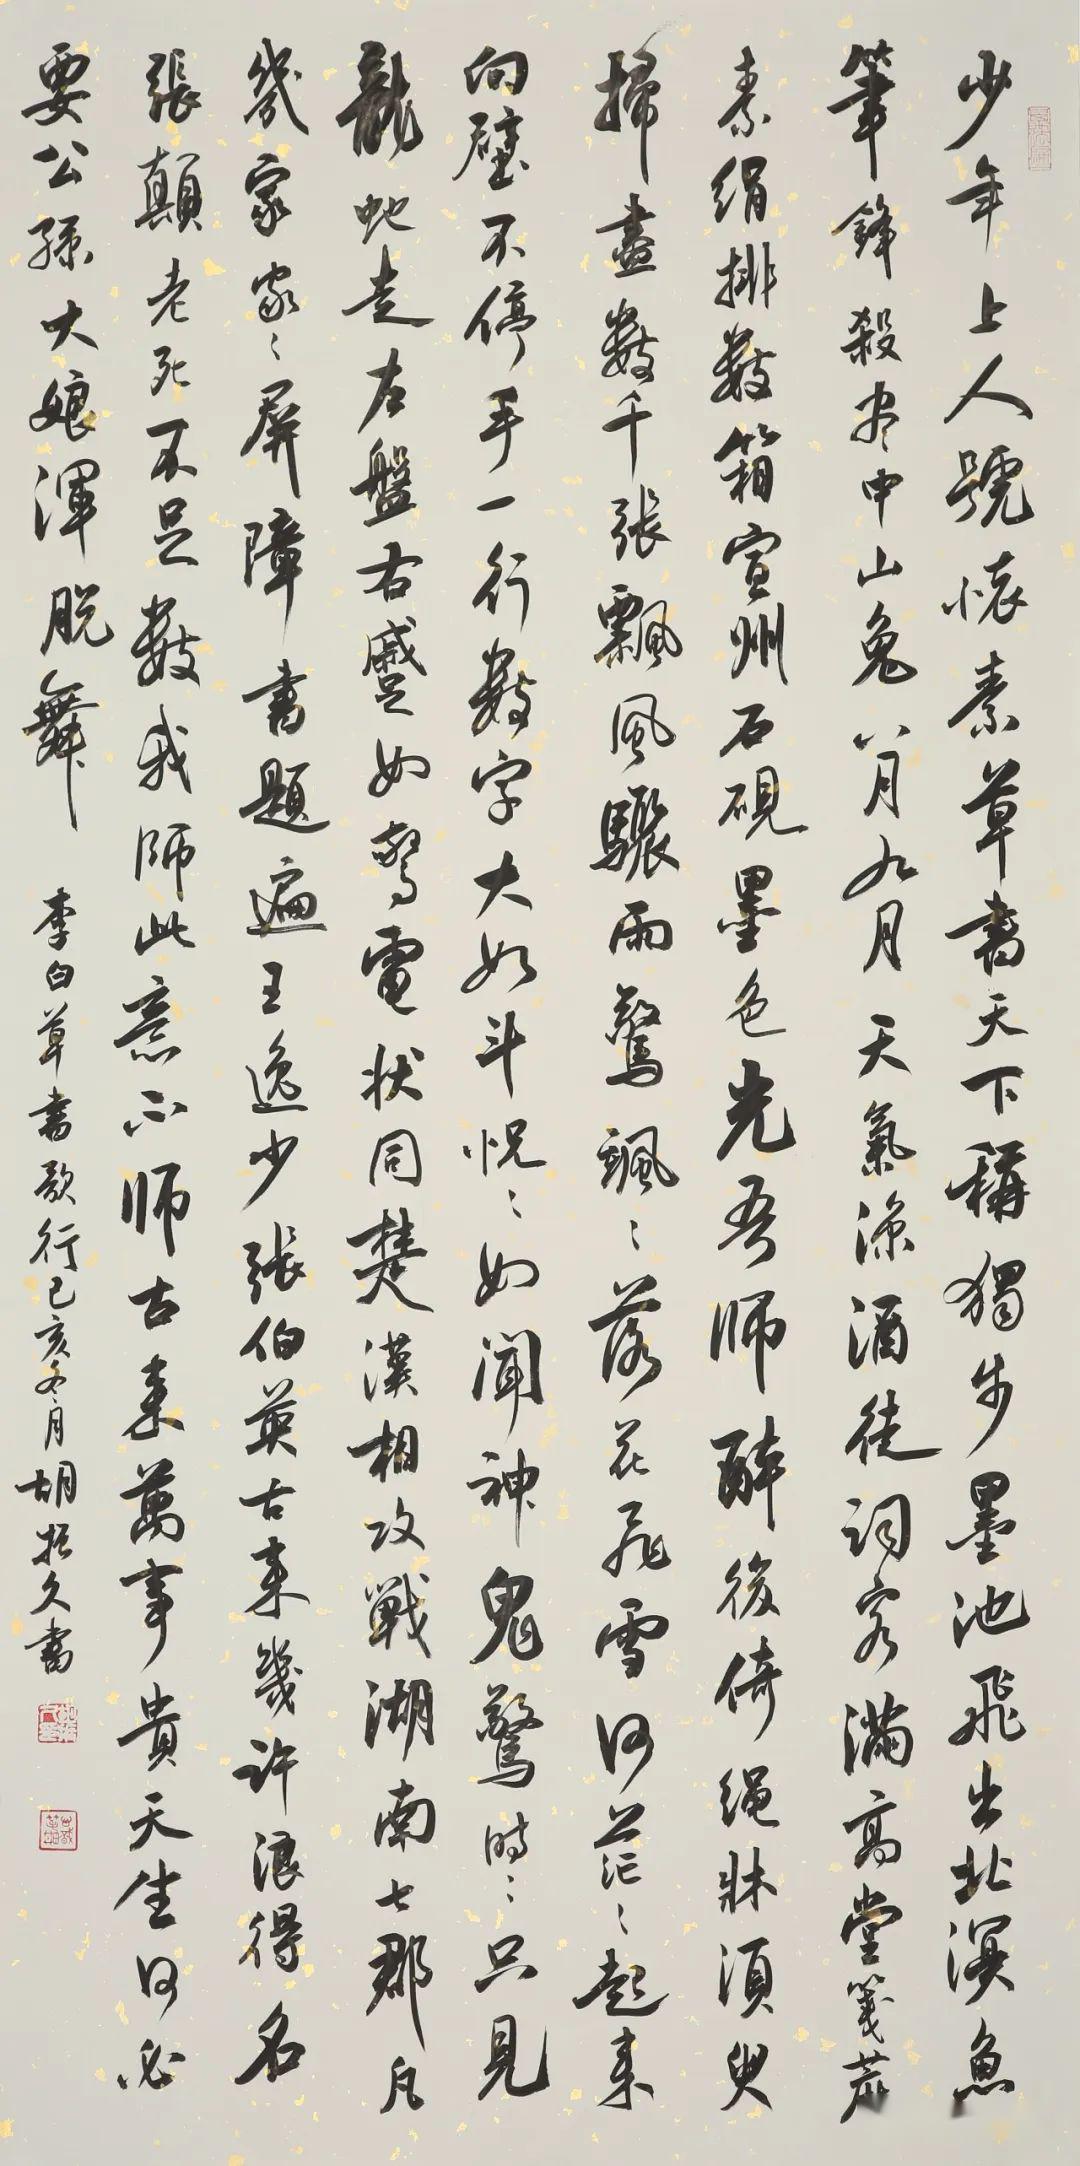 少年上人號懷素草書天下稱獨步墨池飛出北溟魚
筆鋒殺尽中山兔八月九月天氣涼酒徒詞客滿高堂箋麻
素絹排數箱宣州石硯墨色光吾師醉後倚繩牀須臾
掃盡數千張飄風驟雨驚颯〻落花飛雪何茫〻起來
向壁不停手一行數字大如斗怳〻如聞神鬼驚時〻只見
龍蛇走左盤右蹙如驚電狀同楚漢相攻戰湖南七郡凡
幾家家〻屏障書題遍王逸少張伯英古來幾許浪得名
張顛老死不足數我師此意不師古來萬事貴天生何必
要公孫大娘渾脫舞 李白草書歌行己亥冬月胡振久書